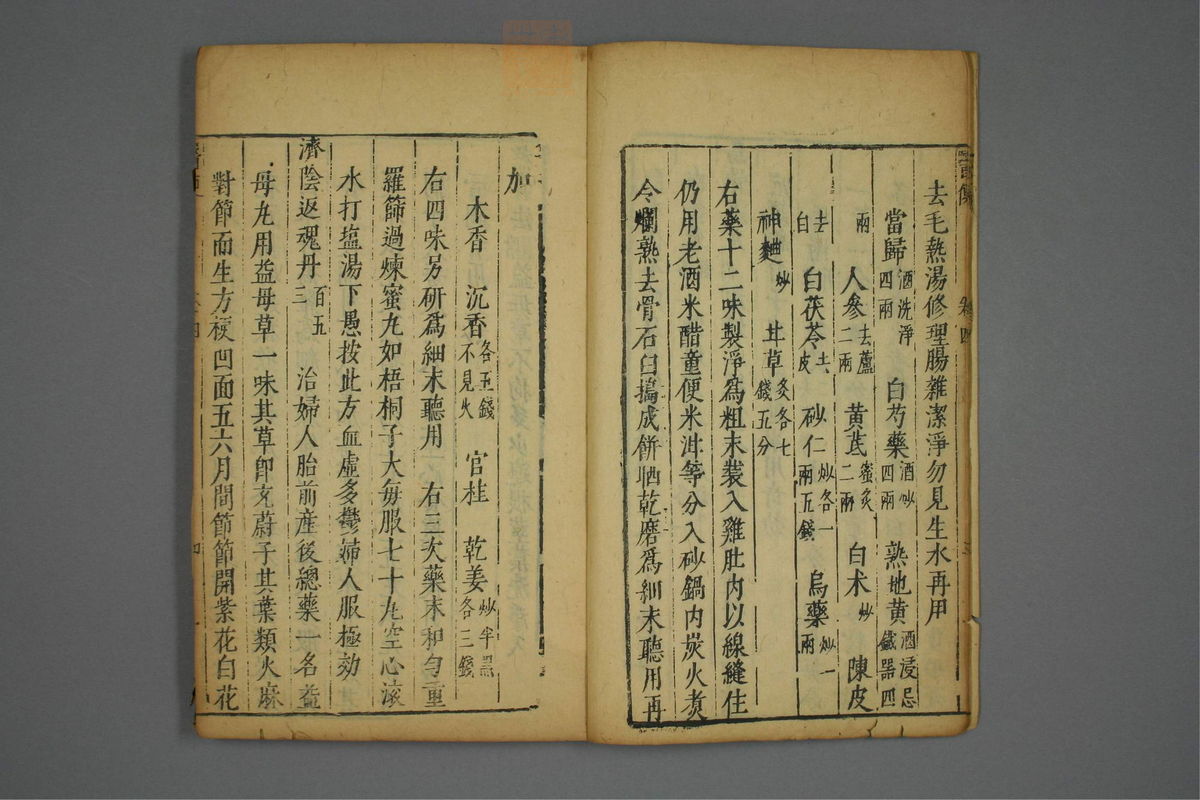 去毛熱湯修理腸雜潔淨勿見生水再用
當歸酒洗淨四兩 白芍藥酒炒四兩 熟地黃酒浸忌鐵器四
兩 人參去蘆二兩 黃芪蜜炙二兩 白术炒 陳皮
去白 白茯苓去皮 砂仁炒各一兩五錢 烏藥炒一兩
神麯炒 甘草炙各七錢五分
右藥十二味製淨爲粗末裝入雞肚內以線縫住
仍用老酒米醋童便米泔等分入砂鍋內炭火煑
令爛熟去骨石臼搗成餅晒乾磨爲細末聽用再
加
木香 沉香各五錢不見火 官桂 乾姜炒半黑各三錢
右四味另研爲細末聽用 右三次藥末和勻重
羅篩過煉蜜丸如梧桐子大每服七十丸空心滾
水打塩湯下愚按此方血虛多鬱婦人服極効
濟陰返魂丹百五三 治婦人胎前産後總藥一名益
母丸用益母草一味其草卽茺蔚子其葉類火麻
對節而生方梗凹面五六月間節節開紫花白花